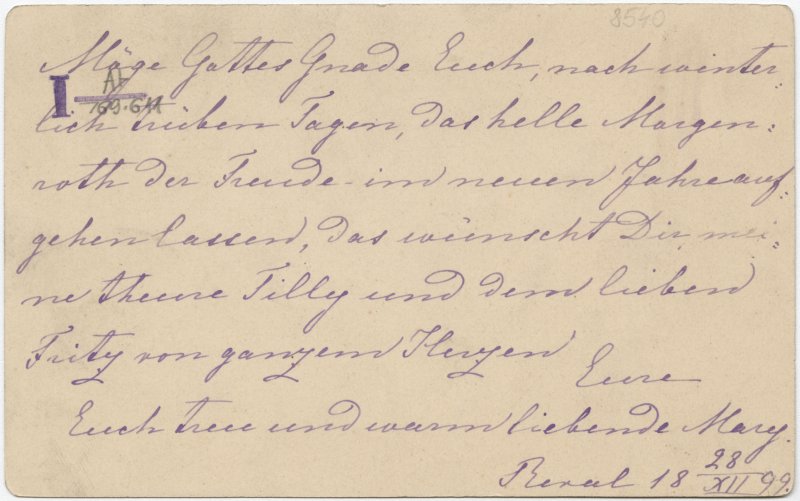 8540
Möge Gottes Gnade Euch, nach winter-
I AF
169.611
lich trüben Tagen, das helle Morgen:
roth der Freude im neuen Jahre auf:
gehen lassen, das wünscht Dir, mei:
ne theure Tilly und dem lieben
Fritz von ganzem Herzen
Eure
Euch treu und warm liebende Mary.
Reval 18 28/XII 99.